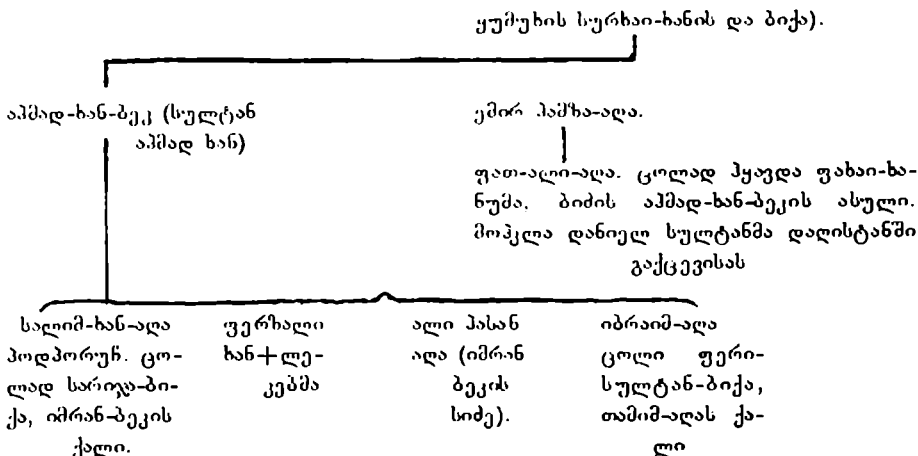 ყუმუხის სურხაი-ხანის და ბიქა).
აჰმად-ხან-ბეკ (სულტან
აჰმად ხან)
ემირ ჰამზა-აღა.
ფათ-ალი-აღა. ცოლად ჰყავდა ფახაი-ხა-
ნუმა, ბიძის აჰმად-ხან-ბეკის ასული.
მოჰკლა დანიელ სულტანმა დაღისტანში
გაქცევისას
სალიმ-ხან-აღა
პოდპორუჩ. ცო-
ლად სარიჯა-ბი-
ქა, იმრან-ბეკის
ქალი.
ფერზალი
ხან+ლე-
კებმა
ალი ჰასან
აღა (იმრან
ბეკის
სიძე).
იბრაიმ-აღა
ცოლი ფერი-
სულტან-ბიქა,
თამიმ-აღას ქა-
ლი